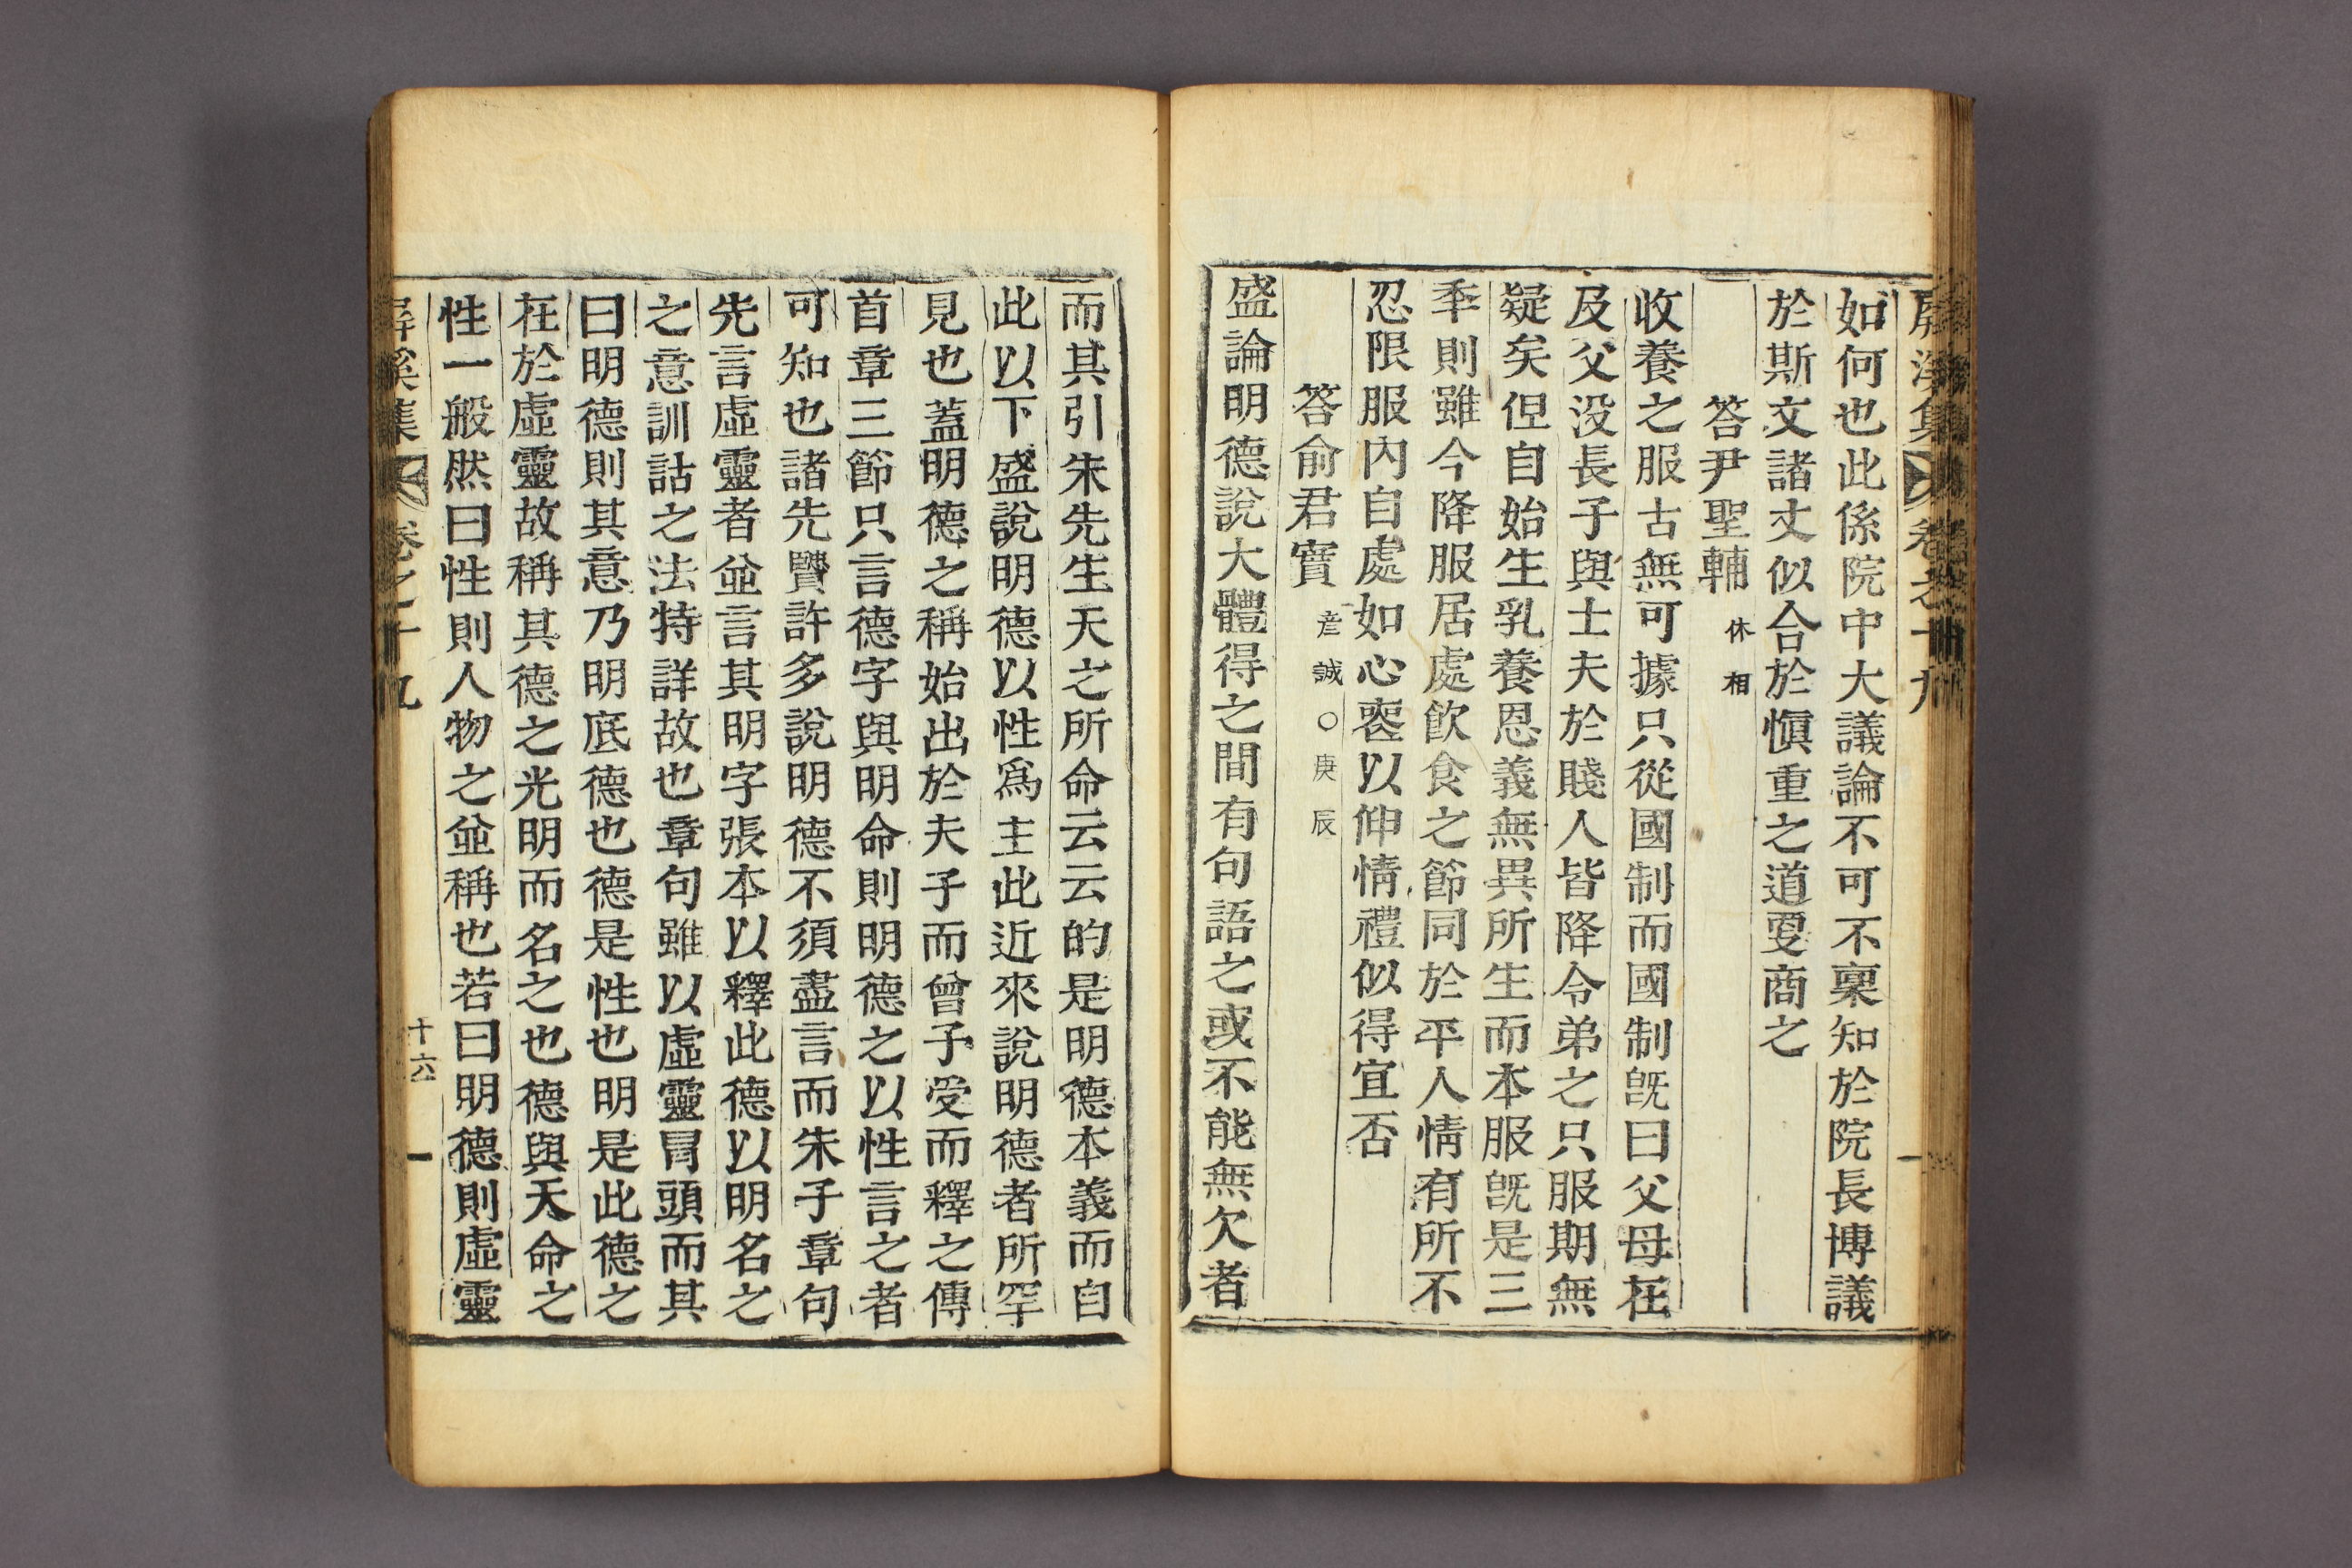 屛溪集 卷之十九
如何也此係院中大議論不可不稟知於院長博議
於斯文諸丈似合於愼重之道更商之
答尹聖輔 休相
收養之服古無可據只從國制而國制旣曰父母在
及父没長子與士夫於賤人皆降令弟之只服期無
疑矣但自始生乳養恩義無異所生而本服旣是三
年則雖今降服居處飮食之節同於平人情有所不
忍限服內自處如心喪以伸情禮似得宜否
答俞君寶 彦誠○庚辰
盛論明德說大體得之間有句語之或不能無欠者
而其引朱先生天之所命云云的是明德本義而自
此以下盛說明德以性爲主此近來說明德者所罕
見也蓋明德之稱始出於夫子而曾子受而釋之傳
首章三節只言德字與明命則明德之以性言之者
可知也諸先贒許多說明德不須盡言而朱子章句
先言虛靈者並言其明字張本以釋此德以明名之
之意訓詁之法特詳故也章句雖以虛靈冒頭而其
曰明德則其意乃明底德也德是性也明是此德之
在於虛靈故稱其德之光明而名之也德與天命之
性一般然曰性則人物之並稱也若曰明德則虛靈
屛溪集 卷之十九 十六